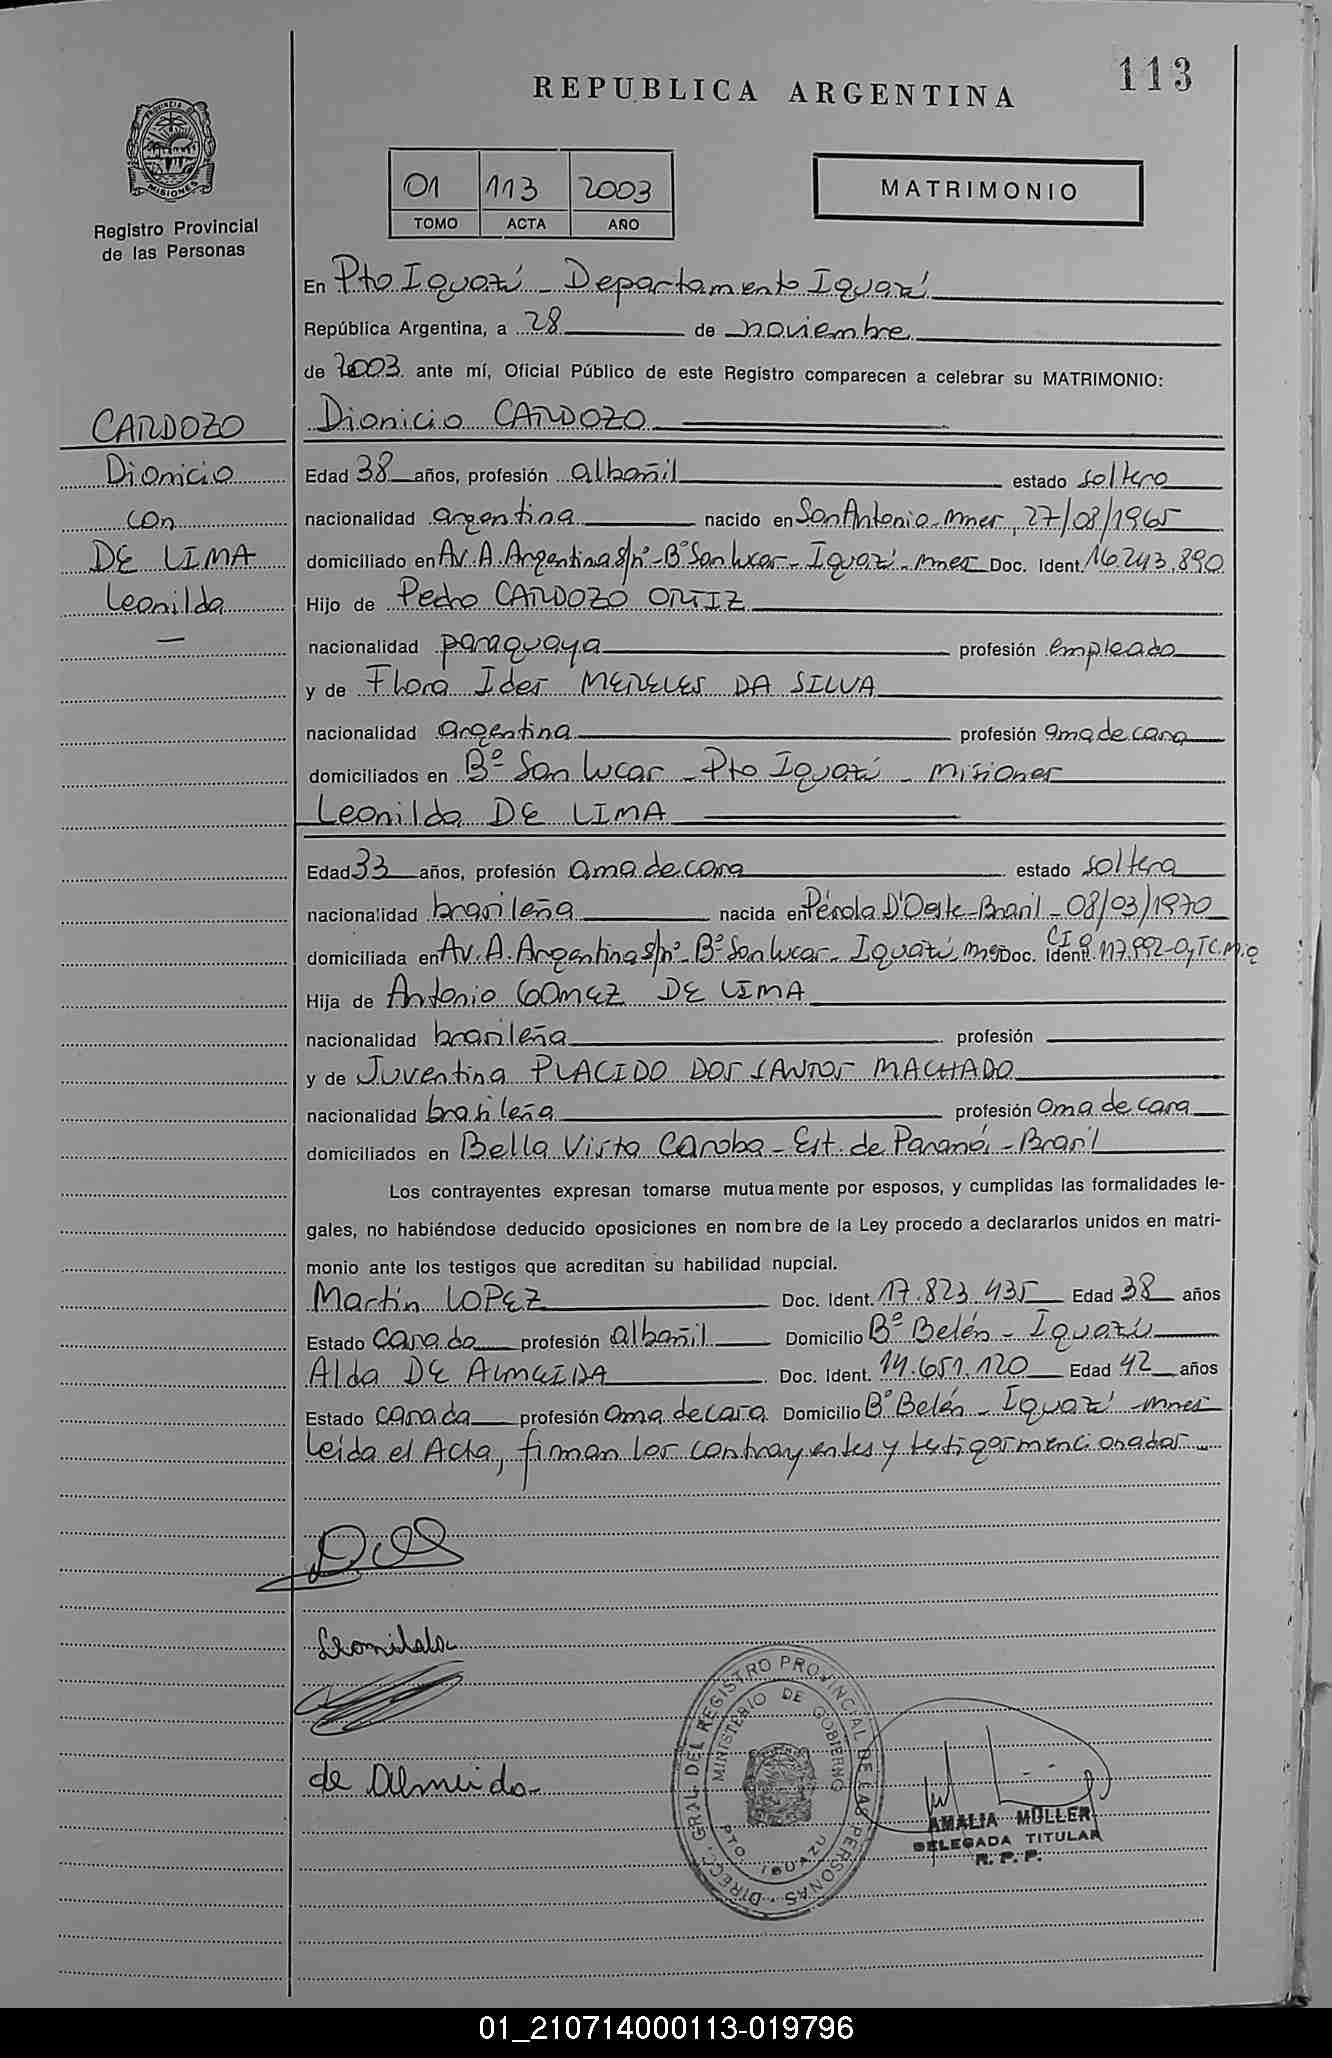 113
REPUBLICA ARGENTINA
PROVINCIA DE MISIONES
Registro Provincial
de las Personas
01 113 2003
TOMO ACTA AÑO
MATRIMONIO
En Pto Iguazú - Departamento Iguazú
República Argentina, a 28 de noviembre
de 2003 ante mí, Oficial Público de este Registro comparecen a celebrar su MATRIMONIO:
CARDOZO
Dionicio
con
DE LIMA
Leonilda
Dionicio CARDOZO
Edad 38 años, profesión albañil estado soltero
nacionalidad argentina nacido en San Antonio - Mnes, 27/08/1965
domiciliado en Av. A. Argentina s/nº - Bº San Lucas - Iguazú - Mnes Doc. Ident. 16.243.890
Hijo de Pedro CARDOZO ORTIZ
nacionalidad paraguaya profesión empleado
y de Flora Ides MERELES DA SILVA
nacionalidad argentina profesión ama de casa
domiciliados en Bº San Lucas - Pto Iguazú - Misiones
Leonilda DE LIMA
Edad 33 años, profesión ama de casa estado soltera
nacionalidad brasileña nacida en Pérola D'Oeste - Brasil - 08/03/1970
domiciliada en Av. A. Argentina s/nº - Bº San Lucas - Iguazú Mnes Doc. Ident.
Hija de Antonio GOMEZ DE LIMA
nacionalidad brasileña profesión
y de Juventina PLACIDO DOS SANTOS MACHADO
nacionalidad brasileña profesión ama de casa
domiciliados en Bella Vista Caroba - Est. de Paraná - Brasil
Los contrayentes expresan tomarse mutuamente por esposos, y cumplidas las formalidades le-
gales, no habiéndose deducido oposiciones en nombre de la Ley procedo a declararlos unidos en matri-
monio ante los testigos que acreditan su habilidad nupcial.
Martín LOPEZ Doc. Ident. 17.823.435 Edad 38 años
Estado casado profesión albañil Domicilio Bº Belén - Iguazú
Alda DE ALMEIDA Doc. Ident. 14.651.120 Edad 42 años
Estado casada profesión ama de casa Domicilio Bº Belén - Iguazú - Mnes
Leída el Acta, firman los contrayentes y testigos mencionados
Leonilda
de Almeida
DIRECC. GRAL. DEL REGISTRO PROVINCIAL DE LAS PERSONAS
MINISTERIO DE GOBIERNO
PTO. IGUAZU
AMALIA MULLER
DELEGADA TITULAR
R. P. P.
01_210714000113-019796